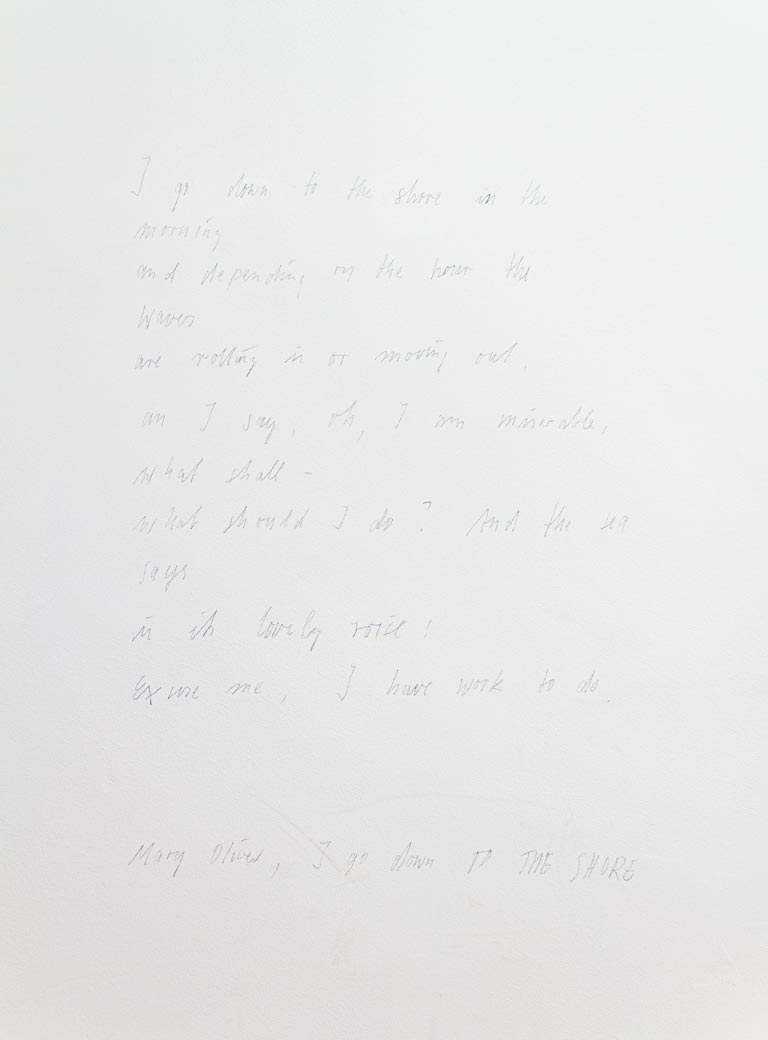 I go down to the shore in the
morning
and depending on the hour the
waves
are rolling in or moving out,
an I say, oh, I am miserable,
what shall –
what should I do? And the sea
says
in its lovely voice!
Excuse me, I have work to do.
Mary Oliver, I go down TO THE SHORE